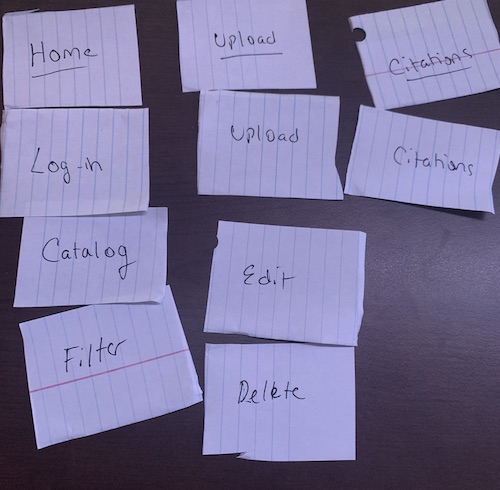 Home
Log-in
Catalog
Filter
Upload
Upload
Edit
Delete
Citations
Citations